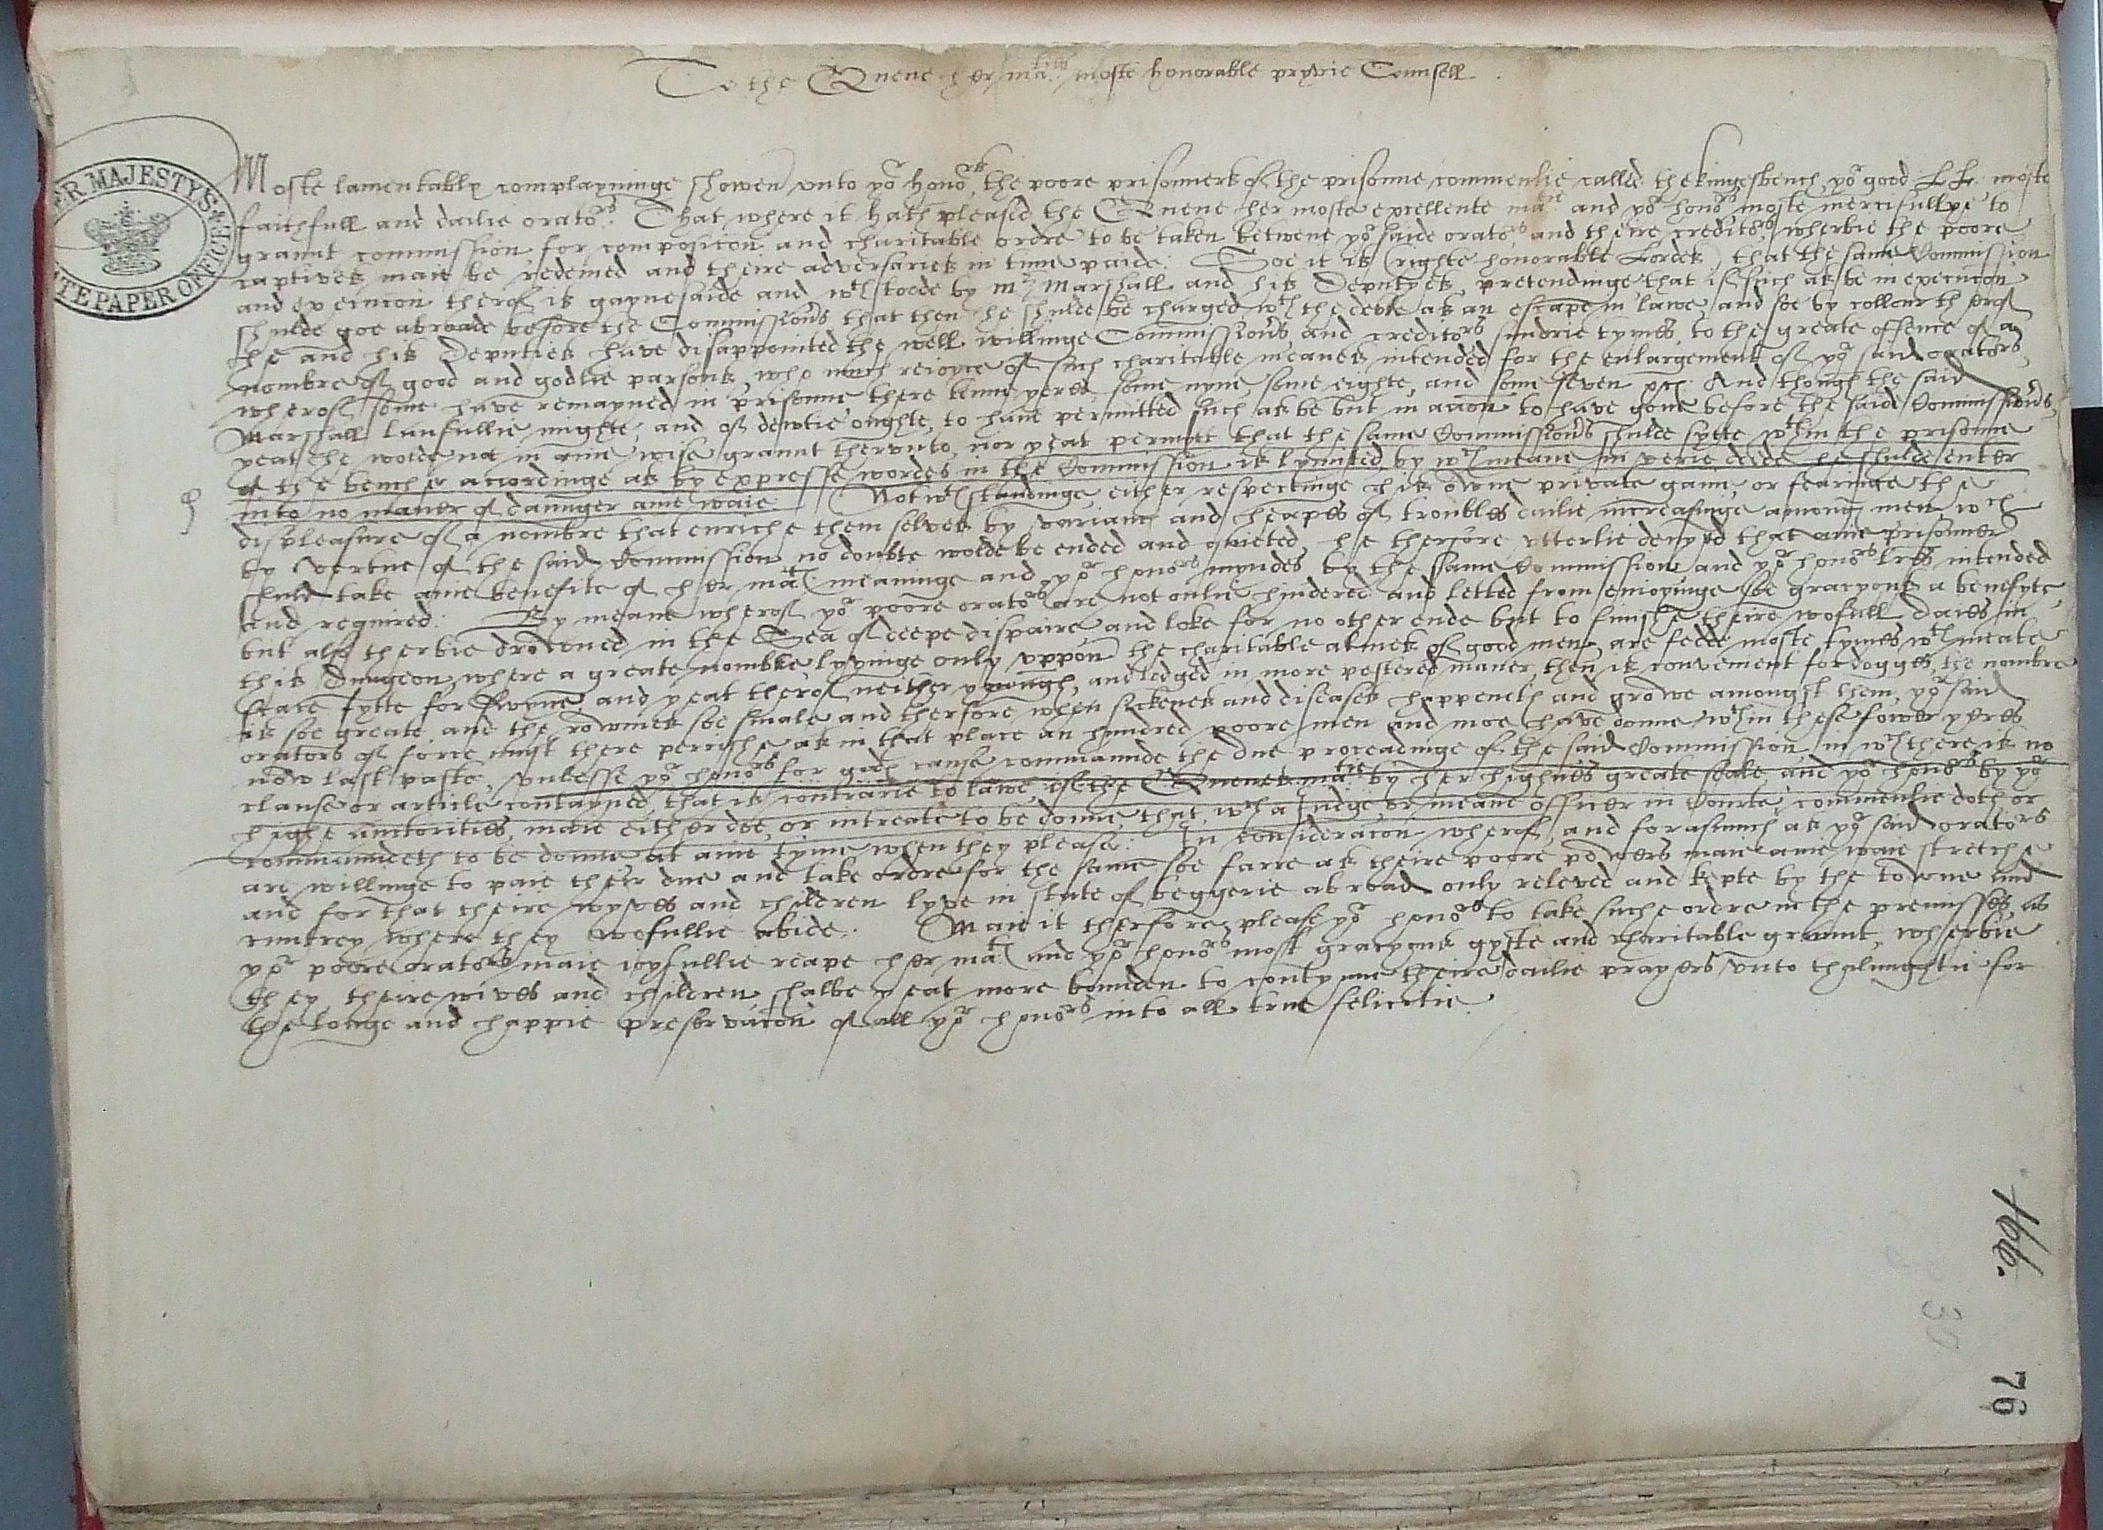 To the Quene her ma.ties moste honorable pryvie Counsell.
HER MAJESTY'S STATE PAPER OFFICE
Moste lamentably complayninge showen vnto yor honors, the poore prisonners of the prisonne commenlie called the kingesbench yor good LL. moste
faithfull and dailie orators. That where it hath pleased the Quene her moste excellente matie and yor honors moste mercifullye to
graunt commission for composicon and charitable ordre to be taken betwene yor saide orators and theire creditors wherbie the poore
captives maie be redemed and theire adversaries in time paide. Soe it is (righte honorable Lordes) that the same Commission
and execucon therof is gaynesaide and wthstoode by mr Marshall and his Deputyes, pretendinge that if such as be in execucon
shulde goe abroade before the Commissioners that then he shulde be charged wth the debte as an escape in lawe, and soe by collour therof
he and his Deputies have disappointed the well willinge Commissioners and creditors sundrie tymes, to the greate offence of a
nombre of good and godlie parsons, who much reioyce of such charitable meanes intended for the enlargement of yor said orators,
wherof some have remayned in prisonne there tenne yeres, some nyne, some eighte, and some seven yeres. And though the said
Marshall laufullie mighte, and of dewtie oughte, to have permitted such as be but in accon to have gone before the saide Commissioners,
yeat he wolde not in anie wise graunt thervnto, nor yeat permytt that the same Commissioners shulde sytte wthin the prisonne
of the bench accordinge as by expresse wordes in the Commission is lymited, by wch meane in verie deede he shulde enter
into no maner of daunger anie waie. Notwthstandinge, either respectinge his owne private gaine, or fearinge the
displeasure of a nombre that enriche them selves by variance and heapes of troubles dailie increasinge among men, wch
by vertue of the said Commission no doubte wolde be ended and quieted, he therfore vtterlie denyed that anie prisonner
shuld take anie benefite of her mats meaninge and yor honors myndes by the same Commission and yor honors lres intended
and required. By meane wherof yor poore orators are not onlie hindered and letted from enioyinge soe gracyous a benefyte,
but also therbie drowned in the Sea of deepe dispaire, and loke for no other ende but to finishe theire wofull daies in
this Dungeon, where a greate nombre lyvinge only vppon the charitable almes of good men, are fedde moste tymes wth meate
scace fytte for Swyne and yeat therof neither ynough, and lodged in more pestered maner, then is convenient for dogges, the nombre
is soe greate, and the rowmes soe smale, and therfore when sicknes and diseases happeneth and growe amongst them, yor said
orators of force must there perrishe as in that place an hundred poore men and moe have donne wthin these fower yeres
now last paste, vnlesse yor honors for gods cause commaunde the due proceadinge of the said Commission, in wch there is no
clause or article contayned, that is contrarie to lawe, if the Quenes matie by her highnes greate seale, and yor honors by yor
highe auctorities, maie either doe, or intreate to be donne that, wch a Judge, or meane officer in Courte, commenlie doth or
commaundeth to be donne at anie tyme when they please. In consideracon wherof, and forasmuch as yor said orators
are willinge to paie their due and take ordre for the same soe farre as theire poore powers maie anie waie stretche
and for that theire wyves and children lyve in state of beggerie abroad only releved and kepte by the towne and
cuntrey where they wofullie abide. Maie it therfore please yor honors to take suche ordre in the premisses, as
yor poore orators maie ioyfullie reape her mats and yor honors most gracyous gyfte and charitable graunt, wherbie
they, theire wives and children shalbe yeat more bounden to contynue theire dailie prayers vnto thalmightie for
the longe and happie preservacon of all yor honors into all true felicitie.
166.
39
76